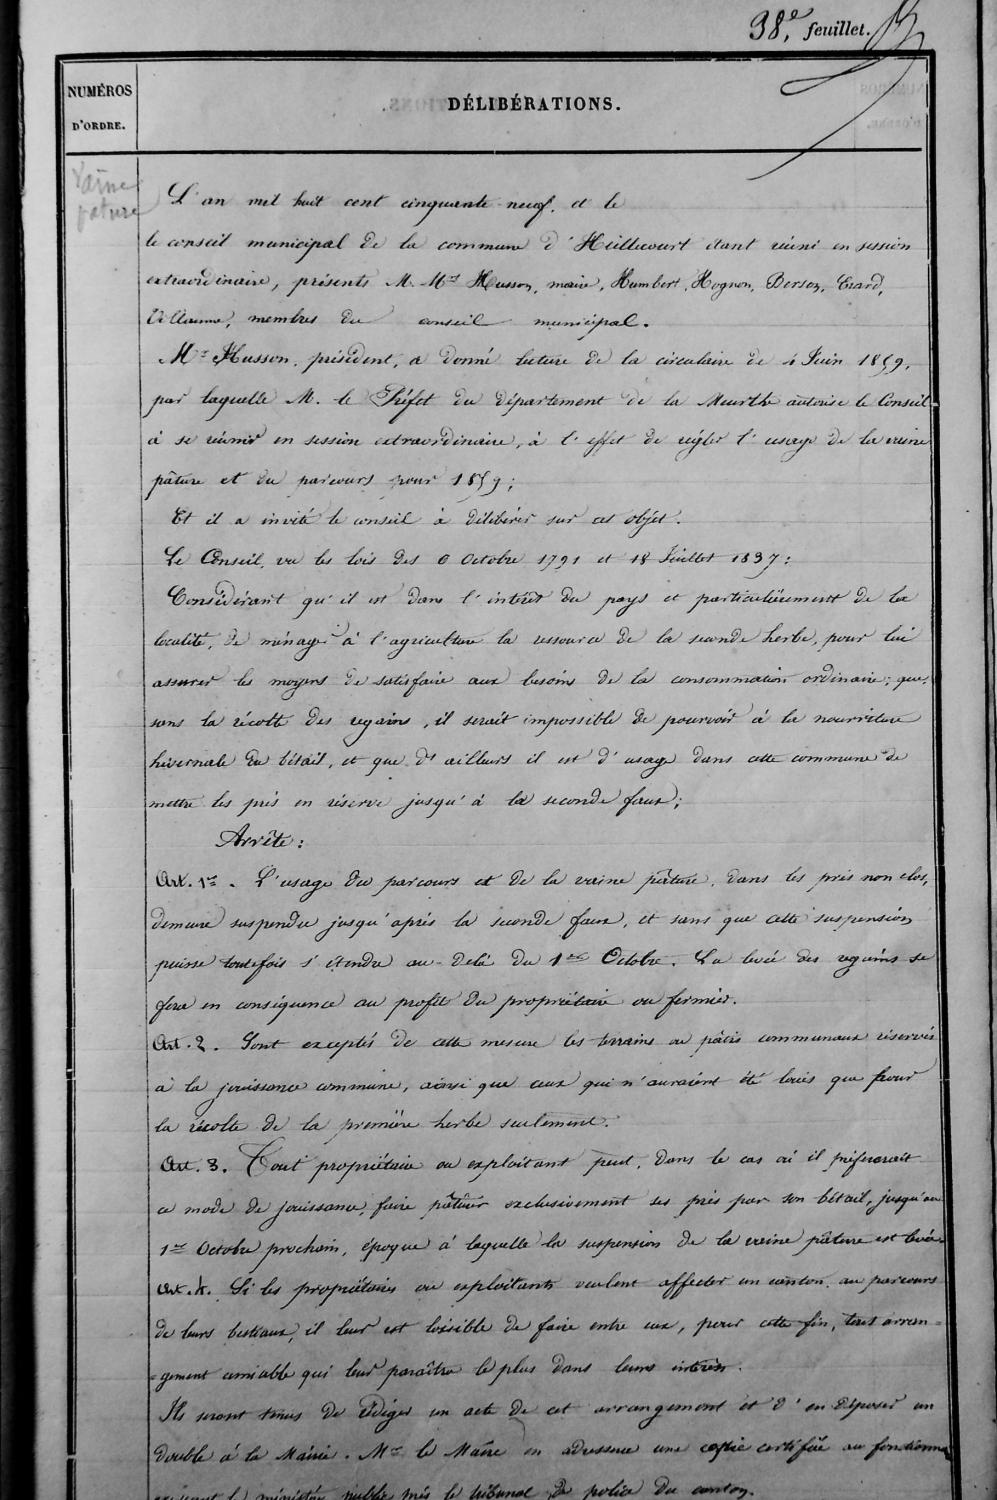 98e, feuillet.
NUMÉROS
D'ORDRE.
DÉLIBÉRATIONS.
Vaine
pature
L'an mil huit cent cinquante-neuf. et le
le conseil municipal de la commune d'Hellecourt étant réuni en session
extraordinaire, présents M. Mrs Husson, maire, Humbert, Hognon, Berson, Erard,
Villaume, membres du conseil municipal.
Mr Husson, président, a donné lecture de la circulaire de 4 Juin 1859,
par laquelle M. le Préfet du département de la Meurthe autorise le Conseil
à se réunir en session extraordinaire, à l'effet de régler l'usage de la vaine
pâture et du parcours pour 1859;
Et il a invité le conseil à délibérer sur cet objet.
Le Conseil, vu les lois des 6 Octobre 1791 et 18 Juillet 1837:
Considérant qu'il est dans l'intérêt du pays et particulièrement de la
localité, de ménager à l'agriculture la ressource de la seconde herbe, pour lui
assurer les moyens de satisfaire aux besoins de la consommation ordinaire; que,
sans la récolte des regains, il serait impossible de pourvoir à la nourriture
hivernale du bétail, et que d'ailleurs il est d'usage dans cette commune de
mettre les prés en réserve jusqu'à la seconde faux;
Arrête:
Art. 1er. L'usage du parcours et de la vaine pâture, dans les prés non clos,
demeure suspendu jusqu'après la seconde faux, et sans que cette suspension
puisse toutefois s'étendre au-delà du 1er Octobre. La levée des regains se
fera en conséquence au profit du propriétaire ou fermier.
Art. 2. Sont exceptés de cette mesure les terrains ou pâtis communaux réservés
à la jouissance commune, ainsi que ceux qui n'auraient été loués que pour
la récolte de la première herbe seulement.
Art. 3. Tout propriétaire ou exploitant peut, dans le cas où il préfererait
ce mode de jouissance, faire pâturer exclusivement ses prés par son bétail, jusqu'au
1er Octobre prochain, époque à laquelle la suspension de la vaine pâture est levée.
Art. 4. Si les propriétaires ou exploitants veulent affecter un canton au parcours
de leurs bestiaux, il leur est loisible de faire entre eux, pour cette fin, tout arran-
=gement amiable qui leur paraître le plus dans leurs intérêts.
Ils seront tenus de rédiger un acte de cet arrangement et d'en déposer un
double à la Mairie. Mr le Maire en adressera une copie certifiée au fonctionna
exerçant le ministère public près le tribunal de police du canton.